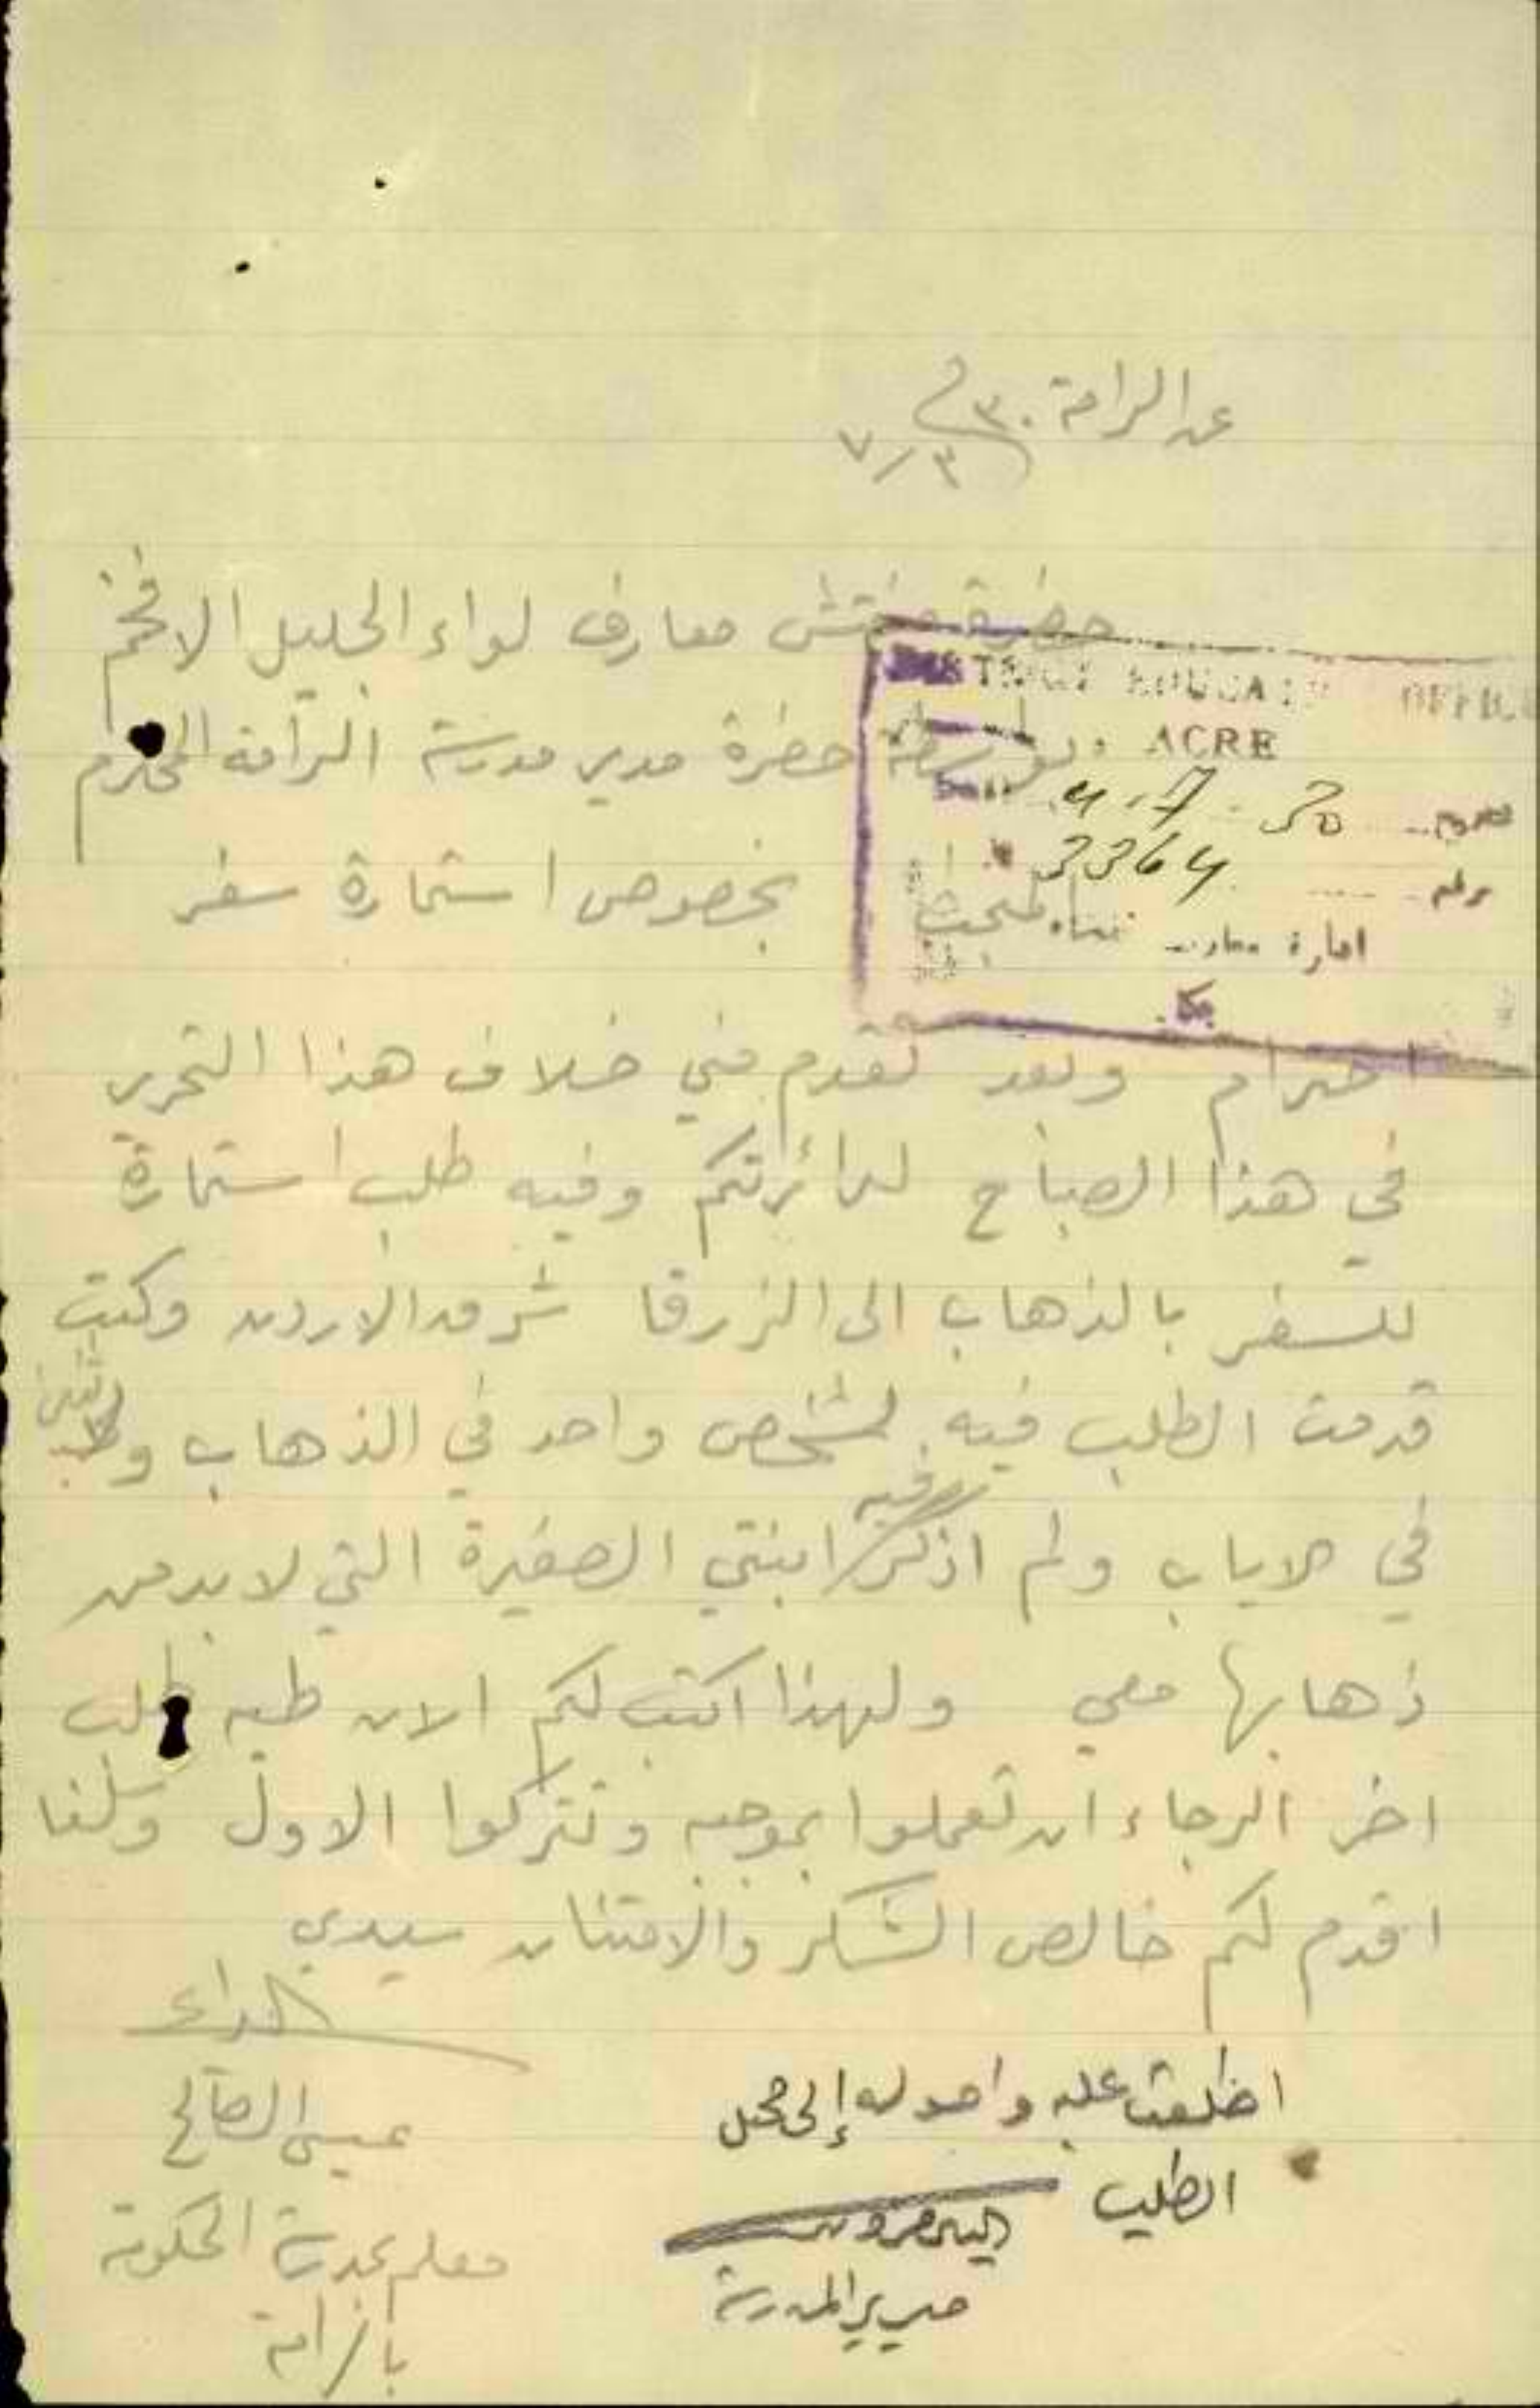 عن الرامة ٣٠م
٣/٧
حضرة مفتش معارف لواء الجليل الافخم
بواسطة حضرة مدير مدرسة الرامة المحترم
DISTRICT EDUCATION OFFICE
ACRE
Date 4-7-30
3364
ادارة معارف
عكا
بخصوص استمارة سفر
احترام وبعد تقدم مني خلاف هذا التحرير
في هذا الصباح لدائرتكم وفيه طلب استمارة
للسفر بالذهاب الى الزرقا شرق الاردن وكنت
قدمت الطلب فيه لشخص واحد في الذهاب ولاثنين
في الاياب ولم اذكر فيه ابنتي الصغيرة التي لا بد من
ذهابها معي ولهذا اكتب لكم الان طيه طلب
اخر الرجاء ان تعملوا بموجبه وتتركوا الاول وسلفا
اقدم لكم خالص الشكر والامتنان سيدي
الداعي
عيسى الصالح
معلم بمدرسة الحكومة
بالرامة
اطلعت عليه واحوله إلى محل
الطلب
مدير المدرسة